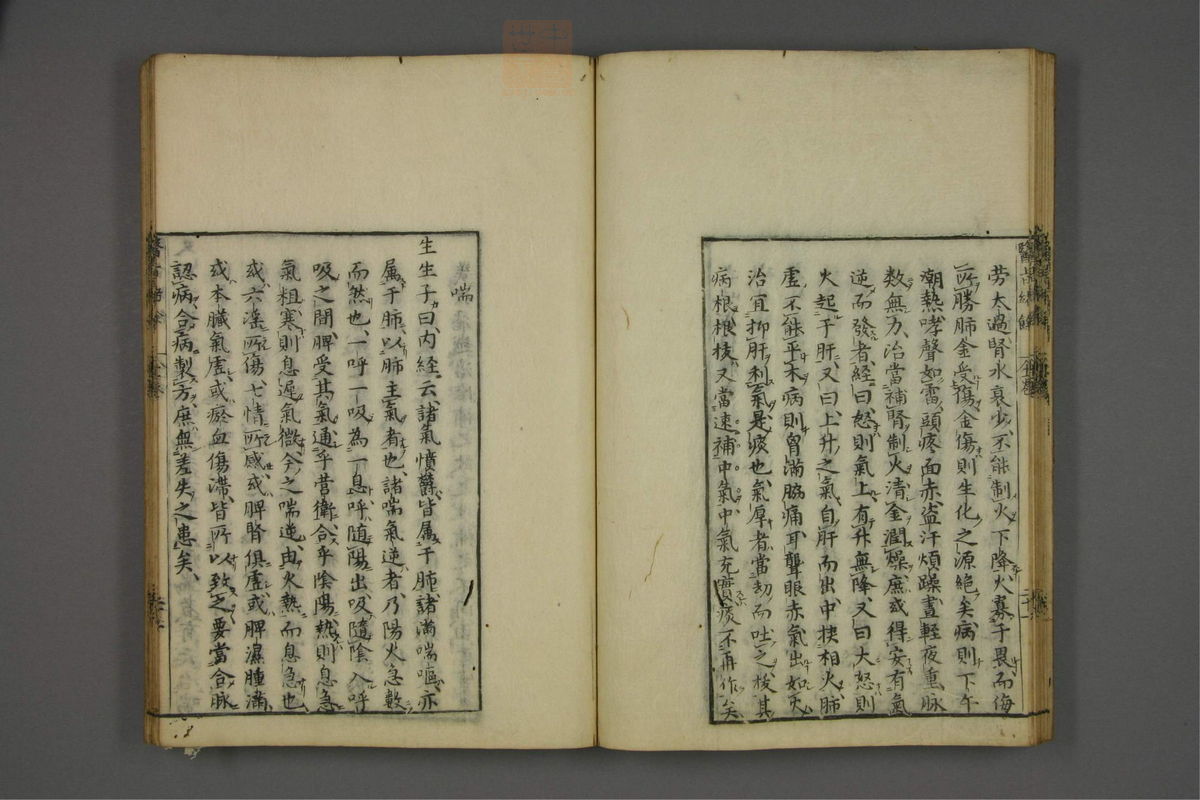 勞太過腎水衰少不能制火下降火寡于畏而侮
所勝肺金受傷金傷則生化之源絶矣病則下午
潮熱哮聲如雷頭疼面赤盗汗煩躁晝輕夜重脉
数無力治當補腎制火清金潤燥庶或得安有氣
逆而發者経曰怒則氣上有升無降又曰大怒則
火起于肝又曰上升之氣自肝而出中挾相火肺
虚不能平木病則胷滿脇痛耳聾眼赤氣出如火
治宜抑肝利氣是痰也氣厚者當劫而吐之梭其
病根根梭又當速補中氣中氣充實痰不再作矣
喘
生生子曰内経云諸氣憤欝皆属于肺諸滿喘嘔亦
属于肺以肺主氣者也諸喘氣逆者乃陽火急數
而然也一呼一吸為一息呼随陽出吸隨陰入呼
吸之間脾受其氣通乎营衛合乎陰陽熱則息急
氣粗寒則息遲氣微今之喘逆由火熱而息急也
或六滛所傷七情所感或脾腎俱虚或脾濕腫滿
或本臓氣虚或瘀血傷滯皆所以致之要當合脉
認病合病製方庶無差失之患矣